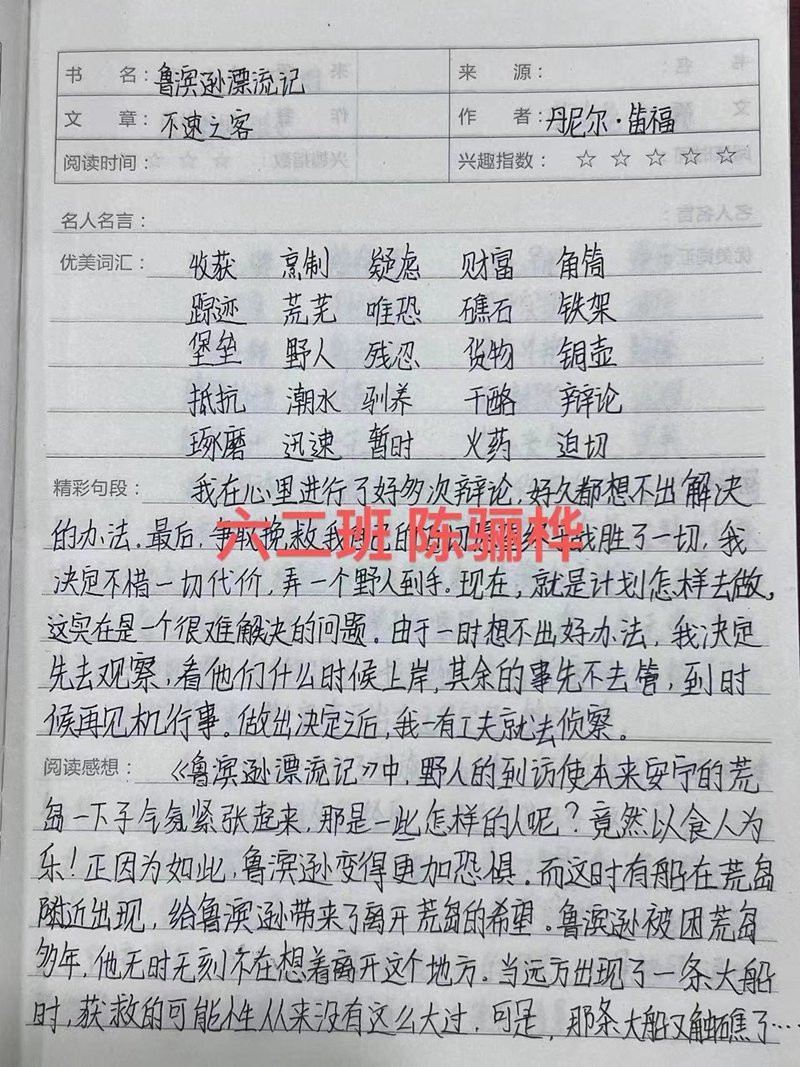 书 名：鲁滨逊漂流记 来 源：
文 章：不速之客 作 者：丹尼尔·笛福
阅读时间： 兴趣指数：☆ ☆ ☆ ☆ ☆
名人名言：
优美词汇： 收获 烹制 疑虑 财富 角筒
踪迹 荒芜 唯恐 礁石 铁架
堡垒 野人 残忍 货物 铜壶
抵抗 潮水 驯养 干酪 辩论
琢磨 迅速 暂时 火药 迫切
精彩句段： 我在心里进行了好多次辩论，好久都想不出解决
的办法。最后，争取挽救我 的 战胜了一切，我
六二班 陈骊桦
决定不惜一切代价，弄一个野人到手。现在，就是计划怎样去做，
这实在是一个很难解决的问题。由于一时想不出好办法，我决定
先去观察，看他们什么时候上岸，其余的事先不去管，到时
候再见机行事。做出决定之后，我一有工夫就去侦察。
阅读感想： 《鲁滨逊漂流记》中，野人的到访使本来安宁的荒
岛一下子气氛紧张起来，那是一些怎样的人呢？竟然以食人为
乐！正因为如此，鲁滨逊变得更加恐惧。而这时有船在荒岛
附近出现，给鲁滨逊带来了离开荒岛的希望。鲁滨逊被困荒岛
多年，他无时无刻不在想着离开这个地方。当远方出现了一条大船
时，获救的可能性从来没有这么大过，可是，那条大船又触礁了……